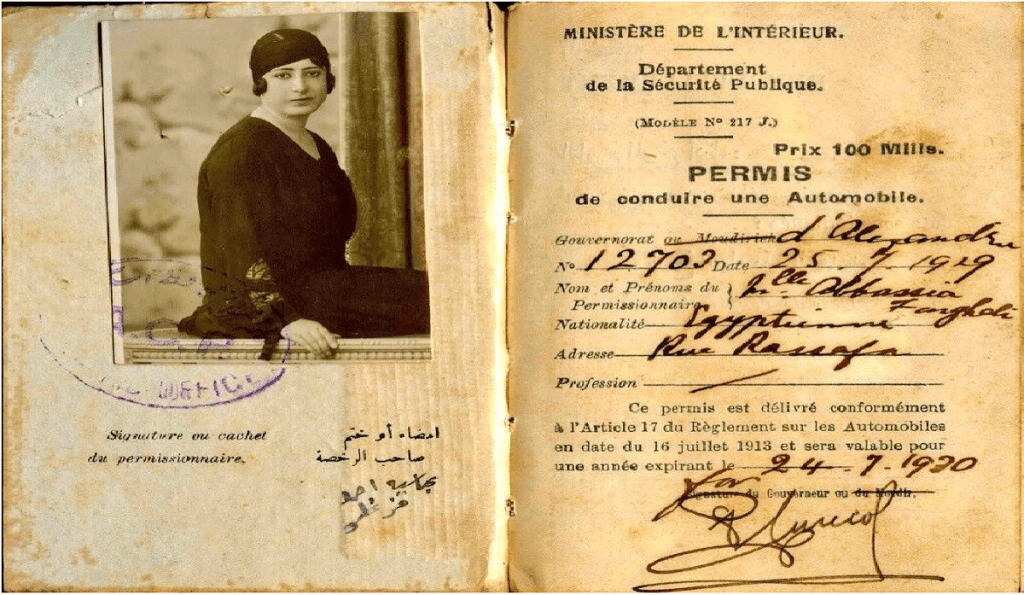 OFFICE
Signature ou cachet
du permissionnaire.
امضاء أو ختم
صاحب الرخصة
MINISTÈRE DE L'INTÉRIEUR.
Département
de la Sécurité Publique.
(MODÈLE N° 217 J.)
Prix 100 Mills.
PERMIS
de conduire une Automobile.
Gouvernorat ou Moudirieh d'Alexandrie
N° 12703 Date 25.7.1929
Nom et Prénoms du Mlle Abbassia
Permissionnaire Farghali
Nationalité Egyptienne
Adresse Rue Rassafa
Profession
Ce permis est délivré conformément
à l'Article 17 du Règlement sur les Automobiles
en date du 16 juillet 1913 et sera valable pour
une année expirant le 24.7.1930
for
Signature du Gouverneur ou du Moudir.